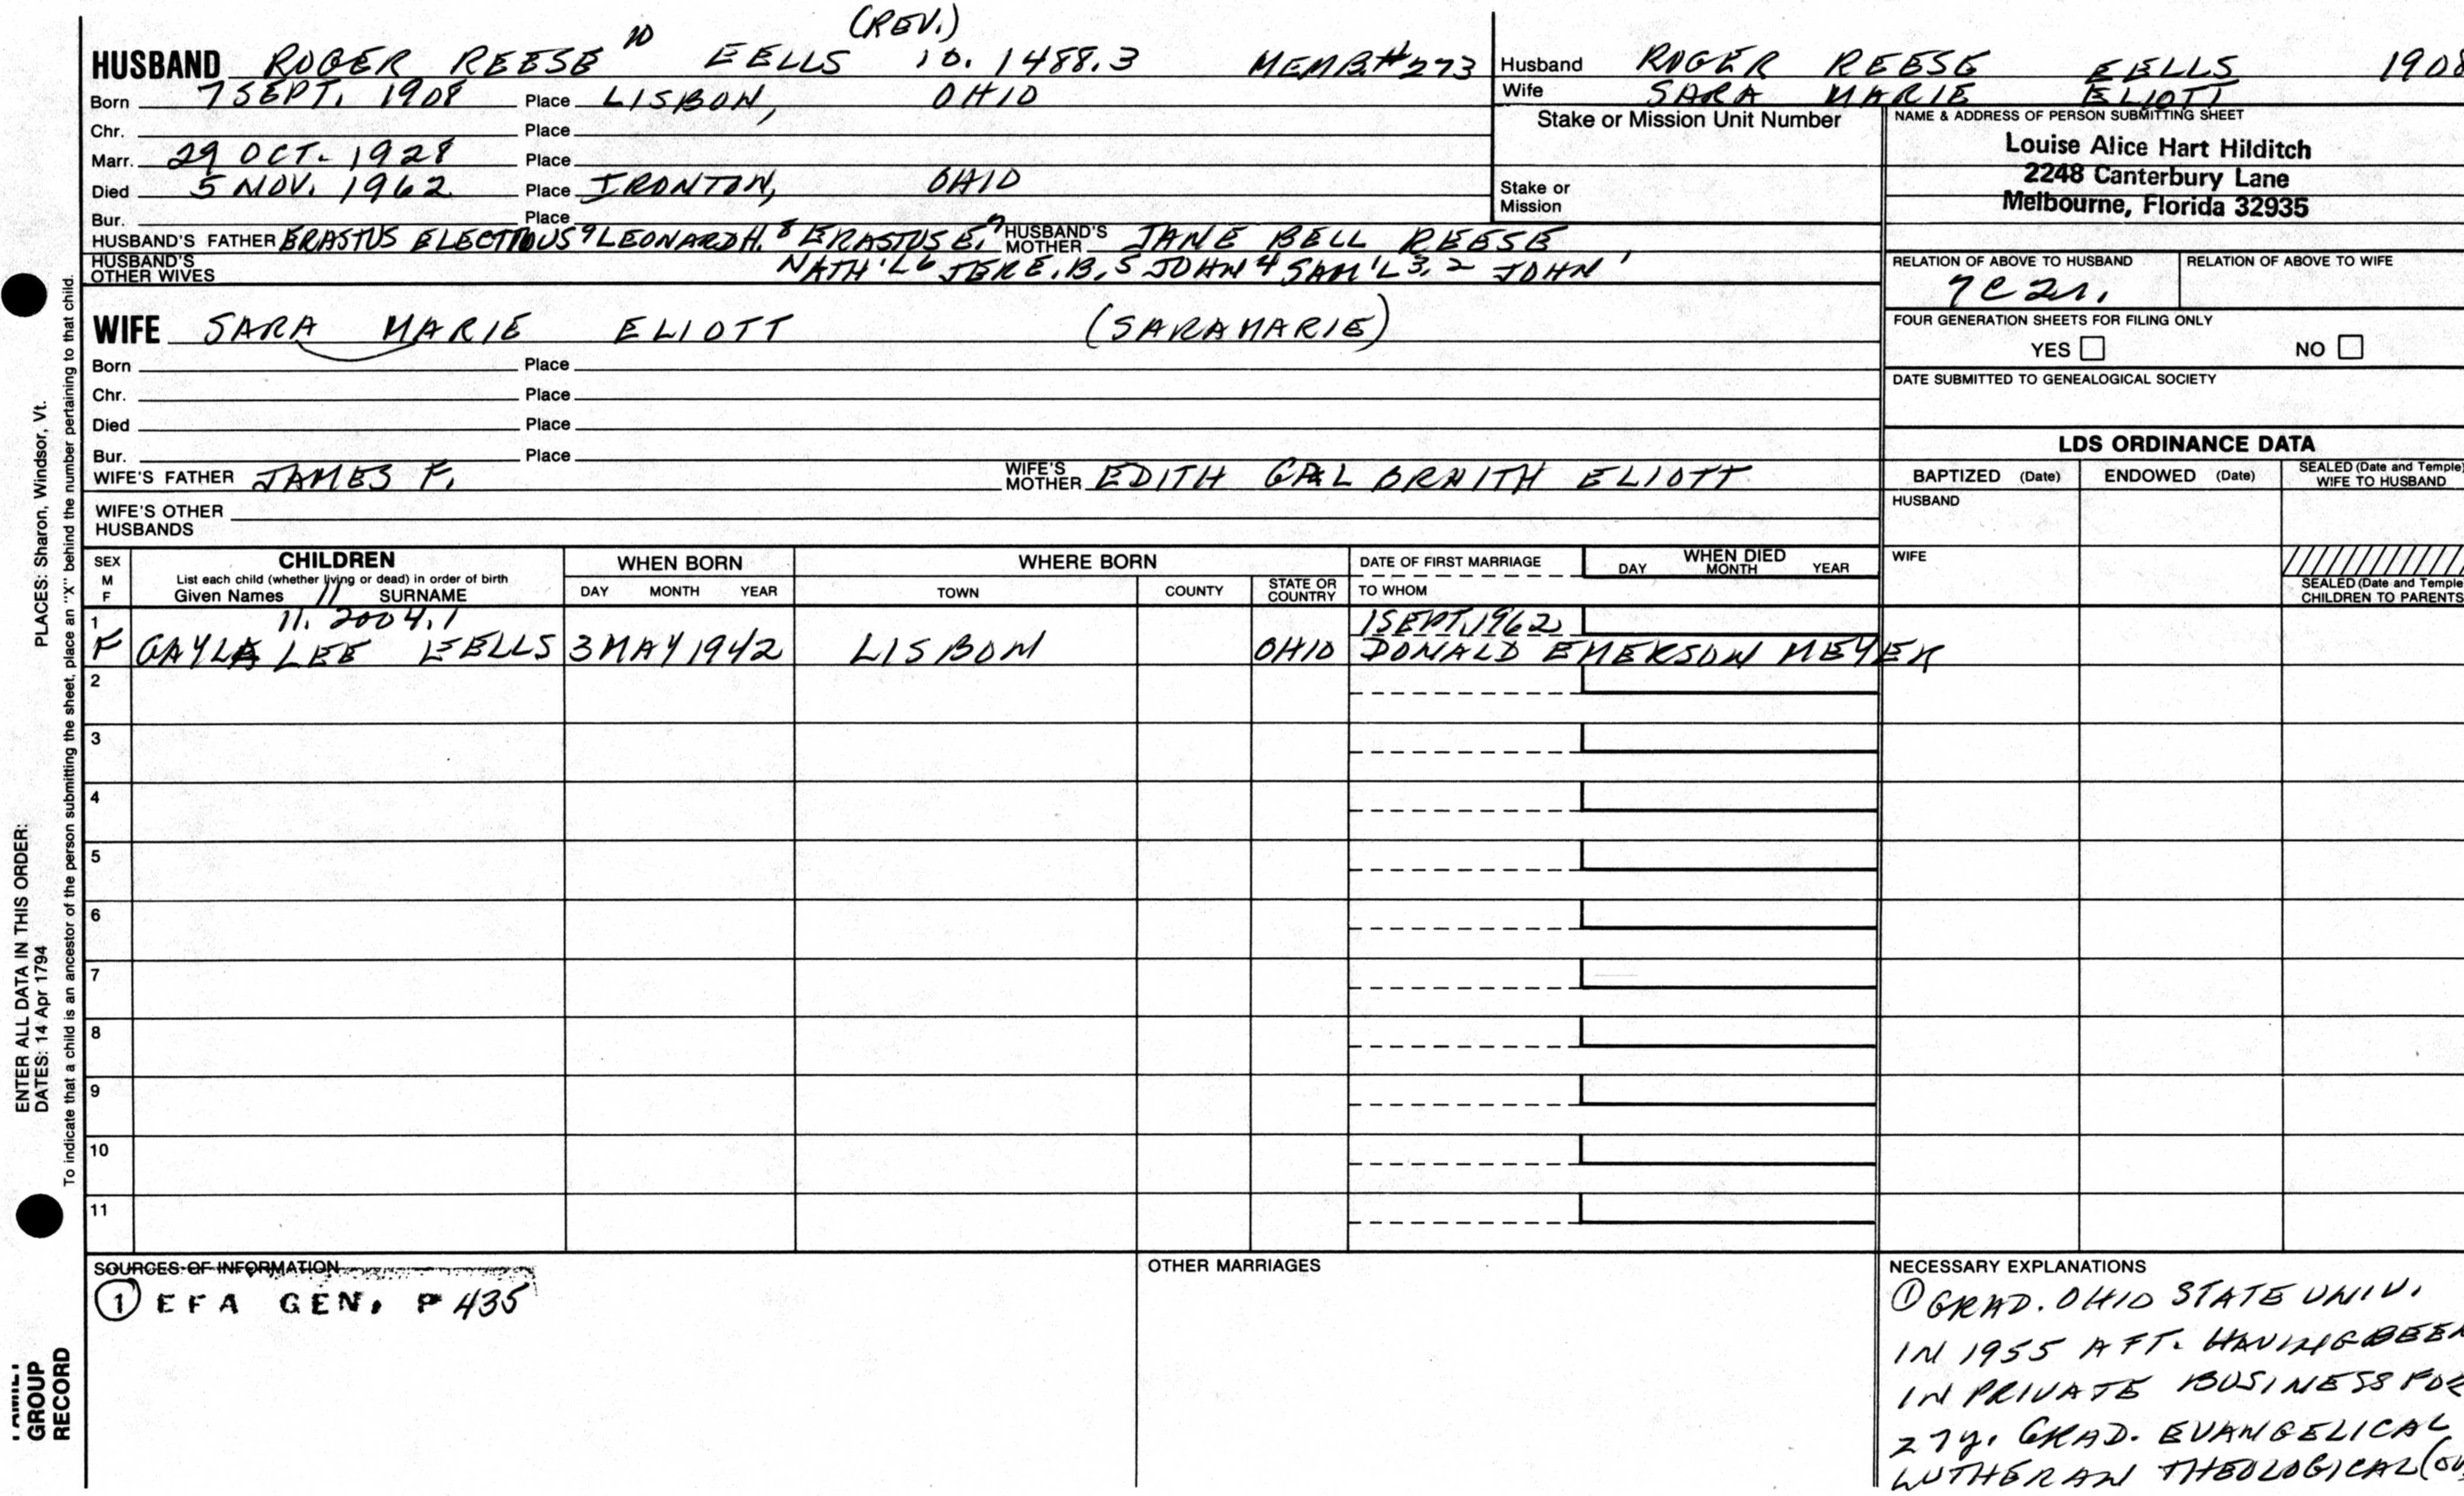 (REV.)
HUSBAND ROGER REESE 10 EELLS 10. 1488.3 MEMB.#273
Born 7 SEPT. 1908 Place LISBON, OHIO
Chr. Place
Marr. 29 OCT. 1928 Place
Died 5 NOV. 1962 Place IRONTON, OHIO
Bur. Place
HUSBAND'S FATHER ERASTUS ELECTIOUS 9 LEONARD H. 8 ERASTUS E. 7 HUSBAND'S MOTHER JANE BELL REESE
HUSBAND'S OTHER WIVES NATH'L 6 JERE. B. 5 JOHN 4 SAM'L 3, 2 JOHN 1
WIFE SARA MARIE ELIOTT (SARAMARIE)
Born Place
Chr. Place
Died Place
Bur. Place
WIFE'S FATHER JAMES F. WIFE'S MOTHER EDITH GALBRAITH ELIOTT
WIFE'S OTHER HUSBANDS
Husband ROGER REESE EELLS 1908
Wife SARA MARIE ELIOTT
Stake or Mission Unit Number
Stake or Mission
NAME & ADDRESS OF PERSON SUBMITTING SHEET
Louise Alice Hart Hilditch
2248 Canterbury Lane
Melbourne, Florida 32935
RELATION OF ABOVE TO HUSBAND RELATION OF ABOVE TO WIFE
7C2r.
FOUR GENERATION SHEETS FOR FILING ONLY
YES NO
DATE SUBMITTED TO GENEALOGICAL SOCIETY
LDS ORDINANCE DATA
BAPTIZED (Date) ENDOWED (Date) SEALED (Date and Temple) WIFE TO HUSBAND
HUSBAND
WIFE
SEALED (Date and Temple CHILDREN TO PARENTS
SEX M F CHILDREN WHEN BORN WHERE BORN DATE OF FIRST MARRIAGE WHEN DIED
List each child (whether living or dead) in order of birth
Given Names 11 SURNAME DAY MONTH YEAR TOWN COUNTY STATE OR COUNTRY TO WHOM DAY MONTH YEAR
1 11. 2004.1 1 SEPT. 1962
F GAYLA LEE EELLS 3 MAY 1942 LISBON OHIO DONALD EMERSON MEYER
2
3
4
5
6
7
8
9
10
11
SOURCES OF INFORMATION
① EFA GEN. P 435
OTHER MARRIAGES
NECESSARY EXPLANATIONS
① GRAD. OHIO STATE UNIV.
IN 1955 AFT. HAVING BEEN
IN PRIVATE BUSINESS FOR
27y. GRAD. EVANGELICAL
LUTHERAN THEOLOGICAL
ENTER ALL DATA IN THIS ORDER:
DATES: 14 Apr 1794 PLACES: Sharon, Windsor, Vt.
To indicate that a child is an ancestor of the person submitting the sheet, place an "X" behind the number pertaining to that child.
FAMILY
GROUP
RECORD